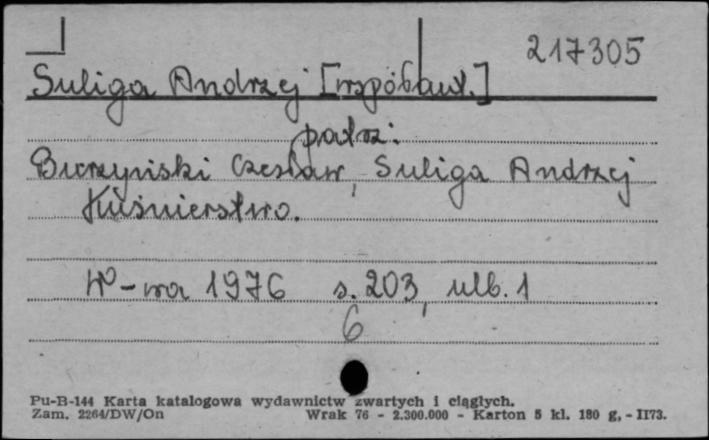 217305
Suliga Andrzej [współaut.]
patrz:
Burzyński Czesław, Suliga Andrzej
Kuśnierstwo.
W-wa 1976 s. 203, ulb. 1
6
Pu-B-144 Karta katalogowa wydawnictw zwartych i ciągłych.
Zam. 2264/DW/On Wrak 76 - 2.300.000 - Karton 5 kl. 180 g, - II73.